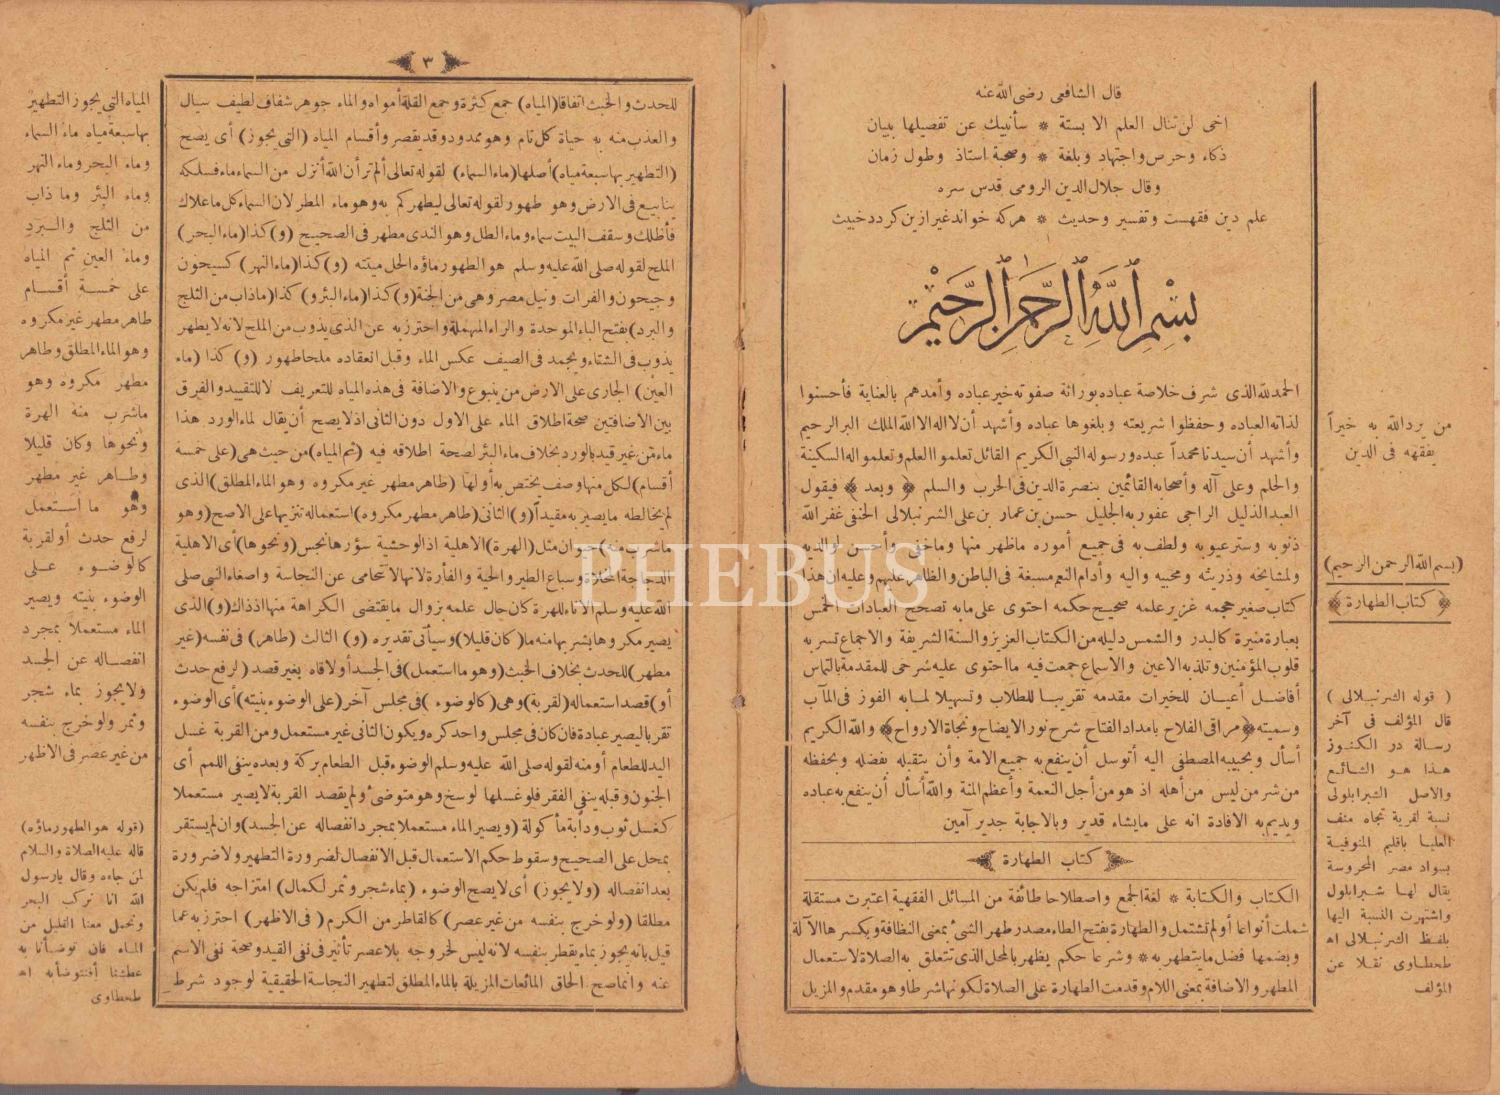 قال الشافعى رضى الله عنه
اخى لن تنال العلم الا بستة * سأنبيك عن تفصيلها ببيان
ذكاء وحرص واجتهاد وبلغة * وصحبة استاذ وطول زمان
وقال جلال الدين الرومى قدس سره
علم دين فقهست وتفسير وحديث * هركه خواند غير ازين كردد خبيث
بسم الله الرحمن الرحيم
الحمد لله الذى شرف خلاصة عباده بوراثة صفوته خير عباده وأمدهم بالعناية فأحسنوا
لذاته العباده وحفظوا شريعته وبلغوها عباده وأشهد أن لا اله الا الله الملك البر الرحيم
وأشهد أن سيدنا محمدا عبده ورسوله النبى الكريم القائل تعلموا العلم وتعلموا له السكينة
والحلم وعلى آله وأصحابه القائمين بنصرة الدين فى الحرب والسلم ﴿ وبعد ﴾ فيقول
العبد الذليل الراجى عفو ربه الجليل حسن بن عمار بن على الشرنبلالى الحنفى غفر الله
ذنوبه وستر عيوبه ولطف به فى جميع أموره ماظهر منها وماخفى وأحسن لوالديه
ولمشايخه وذريته ومحبيه واليه وأدام النعم مسبغة فى الباطن والظاهر عليهم وعليه ان هذا
كتاب صغير حجمه غزير علمه صحيح حكمه احتوى على مابه تصحيح العبادات الخمس
بعبارة منيرة كالبدر والشمس دليله من الكتاب العزيز والسنة الشريفة والاجماع تسر به
قلوب المؤمنين وتلذ به الاعين والاسماع جمعت فيه ما احتوى عليه شرحى للمقدمة بالتماس
أفاضل أعيان للخيرات مقدمه تقريبا للطلاب وتسهيلا لما به الفوز فى المآب
وسميته ﴿ مراقى الفلاح بامداد الفتاح شرح نور الايضاح ونجاة الارواح ﴾ والله الكريم
أسأل وبحبيبه المصطفى اليه أتوسل أن ينفع به جميع الامة وأن يتقبله بفضله ويحفظه
من شر من ليس من أهله اذ هو من أجل النعمة وأعظم المنة والله أسأل أن ينفع به عباده
ويديم به الافادة انه على مايشاء قدير وبالاجابة جدير آمين
كتاب الطهارة
الكتاب والكتابة * لغة الجمع واصطلاحا طائفة من المسائل الفقهية اعتبرت مستقلة
شملت أنواعا أو لم تشتمل والطهارة بفتح الطاء مصدر طهر الشئ بمعنى النظافة وبكسرها الآلة
وبضمها فضل مايتطهر به * وشرعا حكم يظهر بالمحل الذى تتعلق به الصلاة لاستعمال
المطهر والاضافة بمعنى اللام وقدمت الطهارة على الصلاة لكونها شرطا وهو مقدم والمزيل
من يرد الله به خيراً
يفقهه فى الدين
(بسم الله الرحمن الرحيم)
﴿ كتاب الطهارة ﴾
( قوله الشرنبلالى )
قال المؤلف فى آخر
رسالة در الكنوز
هذا هو الشائع
والاصل الشبرابلولى
نسبة لقرية تجاه منف
العليا باقليم المنوفية
بسواد مصر المحروسة
يقال لها شبرابلول
واشتهرت النسبة اليها
بلفظ الشرنبلالى اه
طحطاوى نقلا عن
المؤلف
٣
للحدث والخبث اتفاقا (المياه) جمع كثرة وجمع القلة أمواه والماء جوهر شفاف لطيف سيال
والعذب منه به حياة كل نام وهو ممدود وقد يقصر وأقسام المياه (التى يجوز) أى يصح
(التطهير بها سبعة مياه) أصلها (ماء السماء) لقوله تعالى ألم تر أن الله أنزل من السماء ماء فسلكه
ينابيع فى الارض وهو طهور لقوله تعالى ليطهركم به وهو ماء المطر لان السماء كل ما علاك
فأظلك وسقف البيت سماء وماء الطل وهو الندى مطهر فى الصحيح (و) كذا (ماء البحر)
الملح لقوله صلى الله عليه وسلم هو الطهور ماؤه الحل ميتته (و) كذا (ماء النهر) كسيحون
وجيحون والفرات ونيل مصر وهى من الجنة (و) كذا (ماء البئر و) كذا (ماذاب من الثلج
والبرد) بفتح الباء الموحدة والراء المهملة واحترز به عن الذى يذوب من الملح لانه لا يطهر
يذوب فى الشتاء ويجمد فى الصيف عكس الماء وقبل انعقاده ملحا طهور (و) كذا (ماء
العين) الجارى على الارض من ينبوع والاضافة فى هذه المياه للتعريف لا للتقييد والفرق
بين الاضافتين صحة اطلاق الماء على الاول دون الثانى اذ لا يصح أن يقال لماء الورد هذا
ماء من غير قيد بالورد بخلاف ماء البئر لصحة اطلاقه فيه (ثم المياه) من حيث هى (على خمسة
أقسام) لكل منها وصف يختص به أولها (طاهر مطهر غير مكروه وهو الماء المطلق) الذى
لم يخالطه مايصير به مقيداً (و) الثانى (طاهر مطهر مكروه) استعماله تنزيها على الاصح (وهو
ماشرب منه) حيوان مثل (الهرة) الاهلية اذ الوحشية سؤرها نجس (ونحوها) أى الاهلية
الدجاجة المخلاة وسباع الطير والحية والفأرة لانها لا تتحامى عن النجاسة واصغاء النبى صلى
الله عليه وسلم الاناء للهرة كان حال علمه بزوال مايقتضى الكراهة منها اذذاك (و) الذى
يصير مكروها بشربها منه ما (كان قليلا) وسيأتى تقديره (و) الثالث (طاهر) فى نفسه (غير
مطهر) للحدث بخلاف الخبث (وهو ما استعمل) فى الجسد أو لاقاه بغير قصد (لرفع حدث
أو) قصد استعماله (لقربة) وهى (كالوضوء) فى مجلس آخر (على الوضوء بنيته) أى الوضوء
تقربا ليصير عبادة فان كان فى مجلس واحد كره ويكون الثانى غير مستعمل ومن القربة غسل
اليد للطعام أو منه لقوله صلى الله عليه وسلم الوضوء قبل الطعام بركة وبعده ينفى اللمم أى
الجنون وقبله ينفى الفقر فلو غسلها لوسخ وهو متوضئ ولم يقصد القربة لا يصير مستعملا
كغسل ثوب ودابة مأكولة (ويصير الماء مستعملا بمجرد انفصاله عن الجسد) وان لم يستقر
بمحل على الصحيح وسقوط حكم الاستعمال قبل الانفصال لضرورة التطهير ولا ضرورة
بعد انفصاله (ولا يجوز) أى لا يصح الوضوء (بماء شجر وثمر لكمال) امتزاجه فلم يكن
مطلقا (ولو خرج بنفسه من غير عصر) كالقاطر من الكرم (فى الاظهر) احترز به عما
قيل بانه يجوز بماء يقطر بنفسه لانه ليس لخروجه بلا عصر تأثير فى نفى القيد وصحة نفى الاسم
عنه وانما صح الحاق المائعات المزيلة بالماء المطلق لتطهير النجاسة الحقيقية لوجود شرط
المياه التى يجوز التطهير
بها سبعة مياه ماء السماء
وماء البحر وماء النهر
وماء البئر وما ذاب
من الثلج والبرد
وماء العين ثم المياه
على خمسة أقسام
طاهر مطهر غير مكروه
وهو الماء المطلق وطاهر
مطهر مكروه وهو
ماشرب منه الهرة
ونحوها وكان قليلا
وطاهر غير مطهر
وهو ما استعمل
لرفع حدث أو لقربة
كالوضوء على
الوضوء بنيته ويصير
الماء مستعملاً بمجرد
انفصاله عن الجسد
ولا يجوز بماء شجر
وثمر ولو خرج بنفسه
من غير عصر فى الاظهر
(قوله هو الطهور ماؤه)
قاله عليه الصلاة والسلام
لمن جاءه وقال يا رسول
الله انا نركب البحر
ونحمل معنا القليل من
الماء فان توضأنا به
عطشنا أفنتوضأ به اه
طحطاوى
PHEBUS